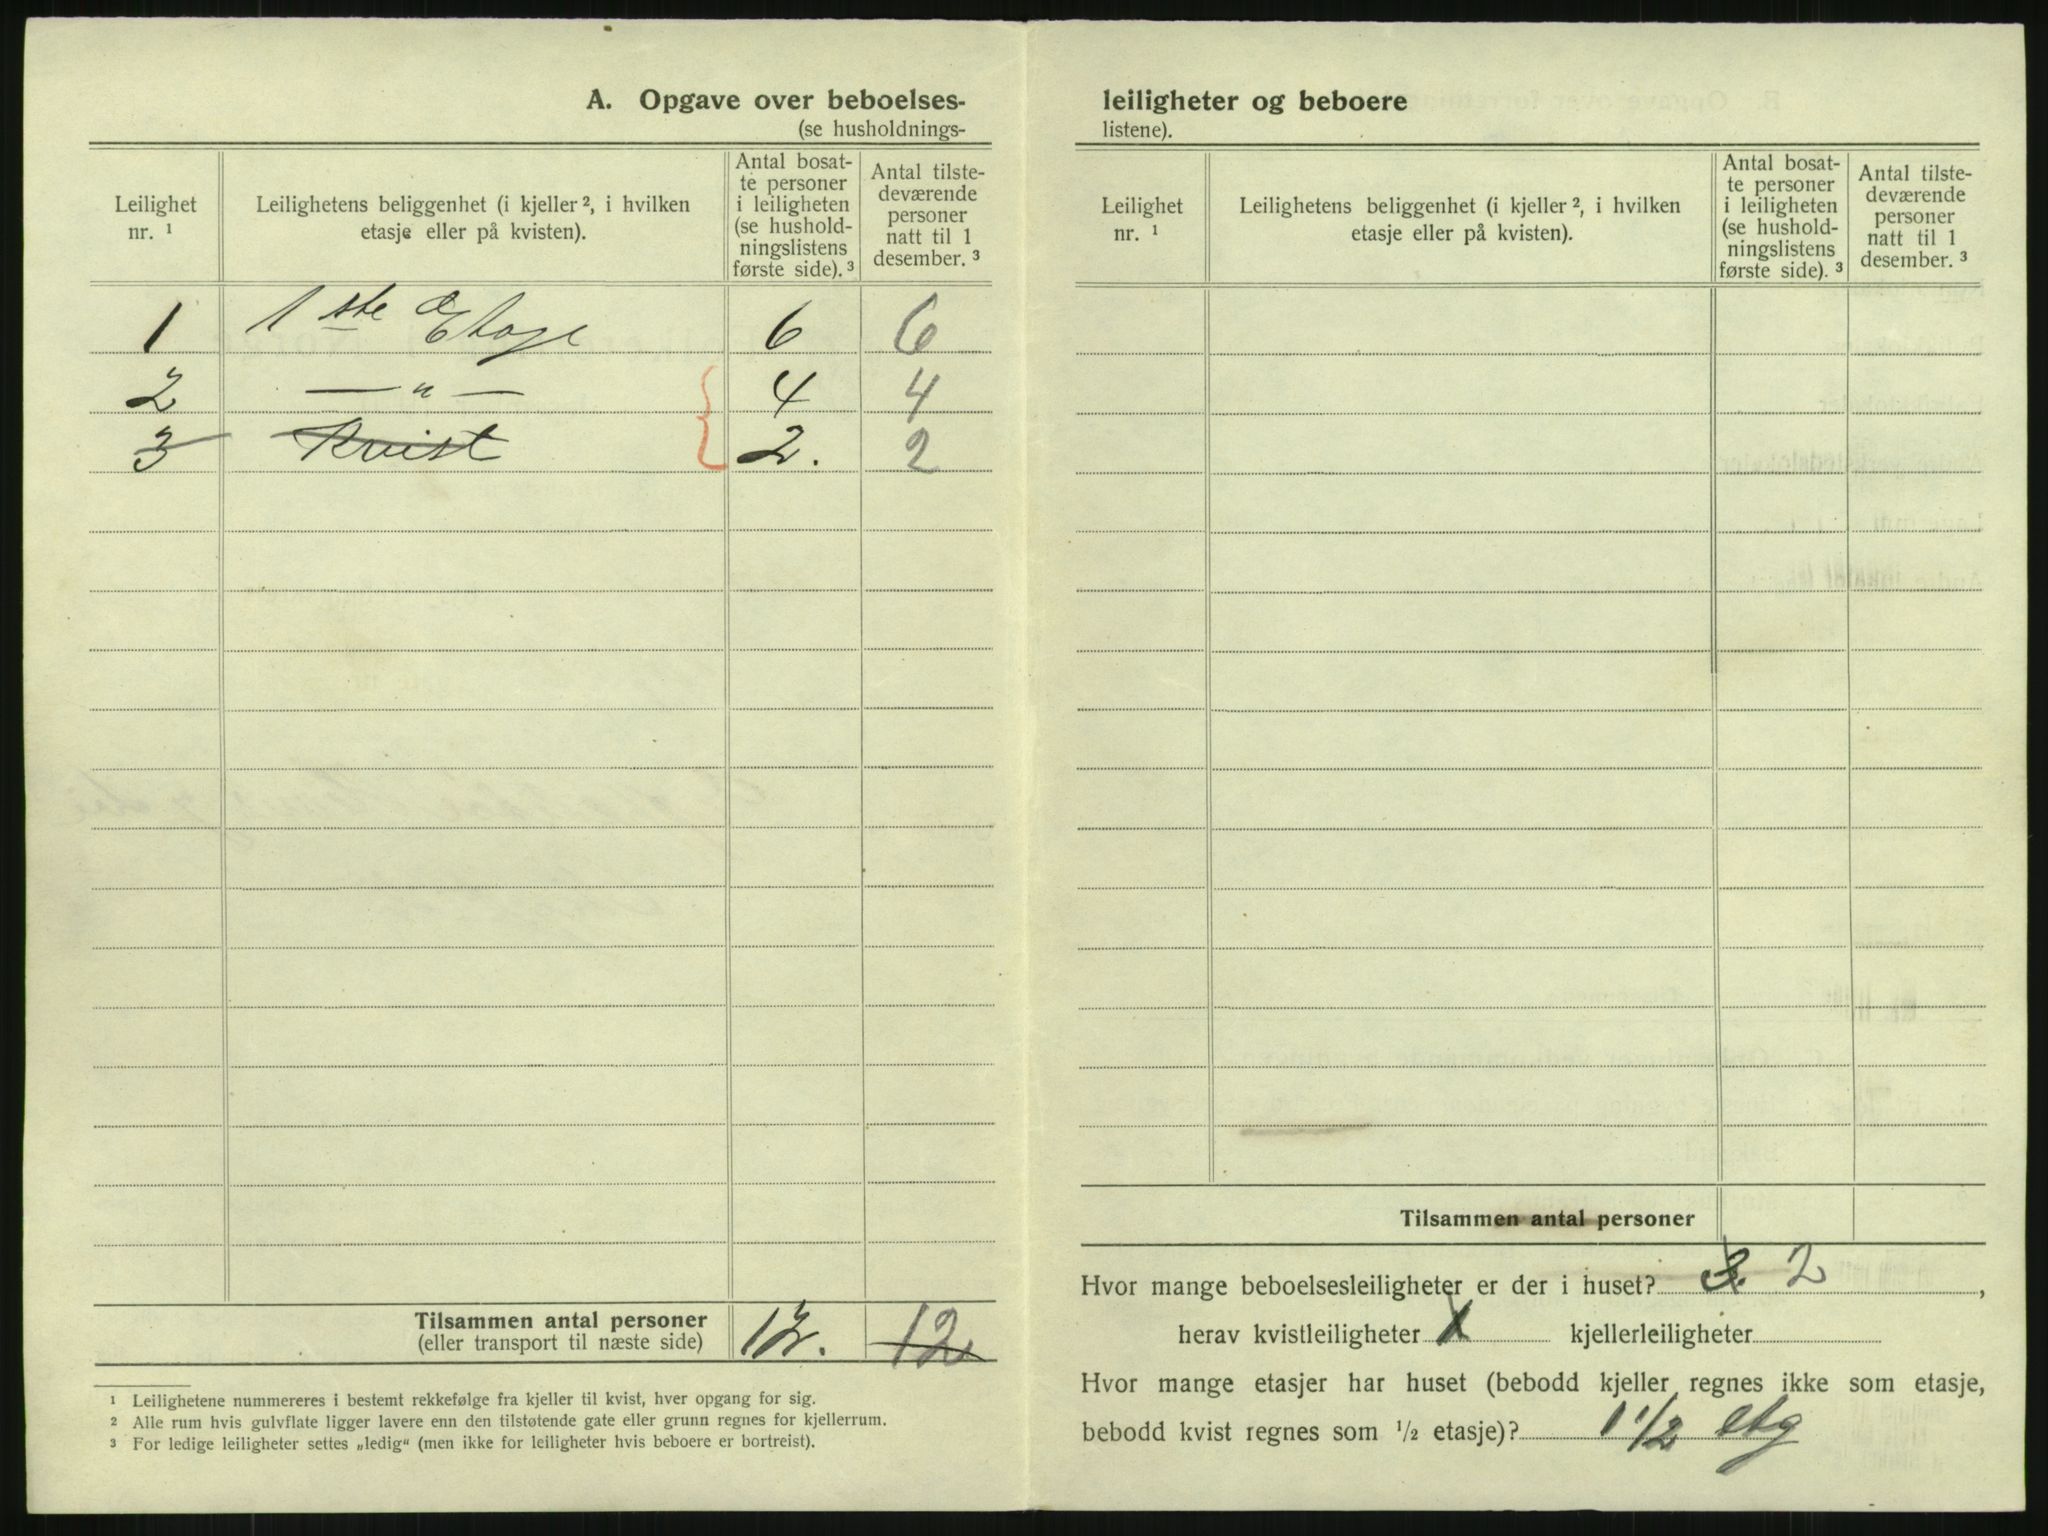 A. Opgave over beboelses-
(se husholdnings-
Leilighet nr. ¹
Leilighetens beliggenhet (i kjeller ², i hvilken etasje eller på kvisten).
Antal bosat-te personer i leiligheten (se hushold-ningslistens første side). ³
Antal tilste-deværende personer natt til 1 desember. ³
1 1ste Etage 6 6
2 — " — 4 4
3 Kvist 2. 2
Tilsammen antal personer 12. 12
(eller transport til næste side)
¹ Leilighetene nummereres i bestemt rekkefølge fra kjeller til kvist, hver opgang for sig.
² Alle rum hvis gulvflate ligger lavere enn den tilstøtende gate eller grunn regnes for kjellerrum.
³ For ledige leiligheter settes „ledig“ (men ikke for leiligheter hvis beboere er bortreist).
leiligheter og beboere
listene).
Leilighet nr. ¹
Leilighetens beliggenhet (i kjeller ², i hvilken etasje eller på kvisten).
Antal bosat-te personer i leiligheten (se hushold-ningslistens første side). ³
Antal tilste-deværende personer natt til 1 desember. ³
Tilsammen antal personer
Hvor mange beboelsesleiligheter er der i huset? 3. 2,
herav kvistleiligheter 1 kjellerleiligheter
Hvor mange etasjer har huset (bebodd kjeller regnes ikke som etasje,
bebodd kvist regnes som ½ etasje)? 1 ½ etg